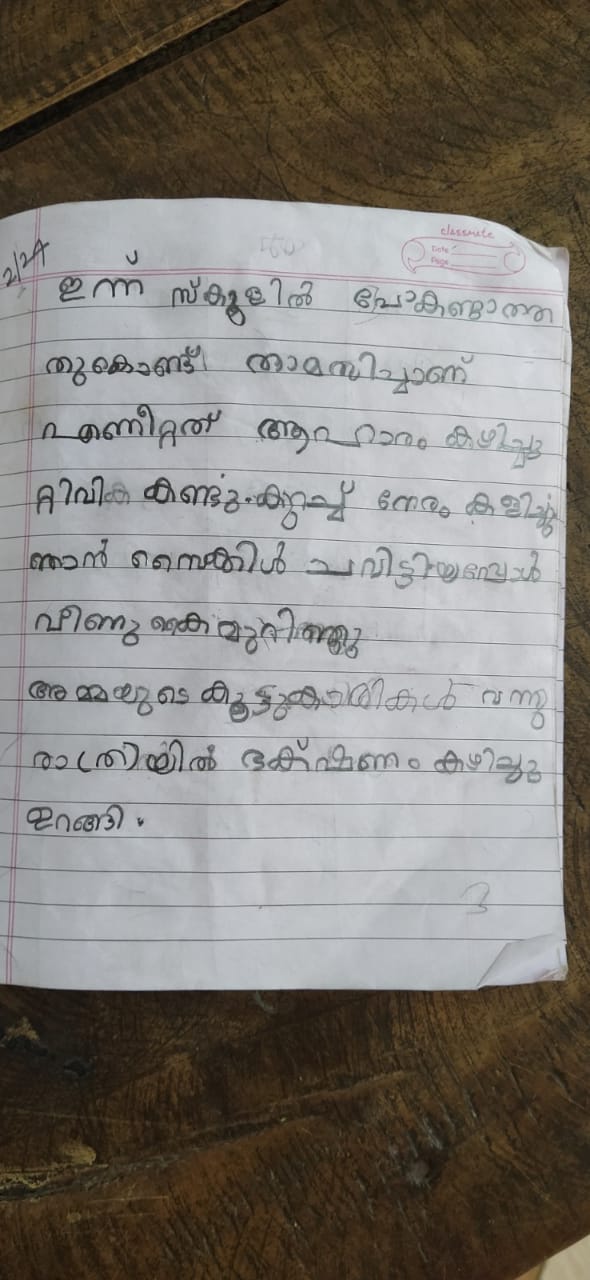 classmate
Date
Page
2/24
ഇന്ന് സ്കൂളിൽ പോകണ്ടാത്ത
തുകൊണ്ട് താമസിച്ചാണ്
എണീറ്റത് ആഹാരം കഴിച്ചു
റ്റിവി കണ്ടു. കുറച്ച് നേരം കളിച്ചു
ഞാൻ സൈക്കിൾ ചവിട്ടിയപ്പോൾ
വീണു കൈ മുറിഞ്ഞു
അമ്മയുടെ കൂട്ടുകാരികൾ വന്നു
രാത്രിയിൽ ഭക്ഷണം കഴിച്ചു
ഉറങ്ങി.
3